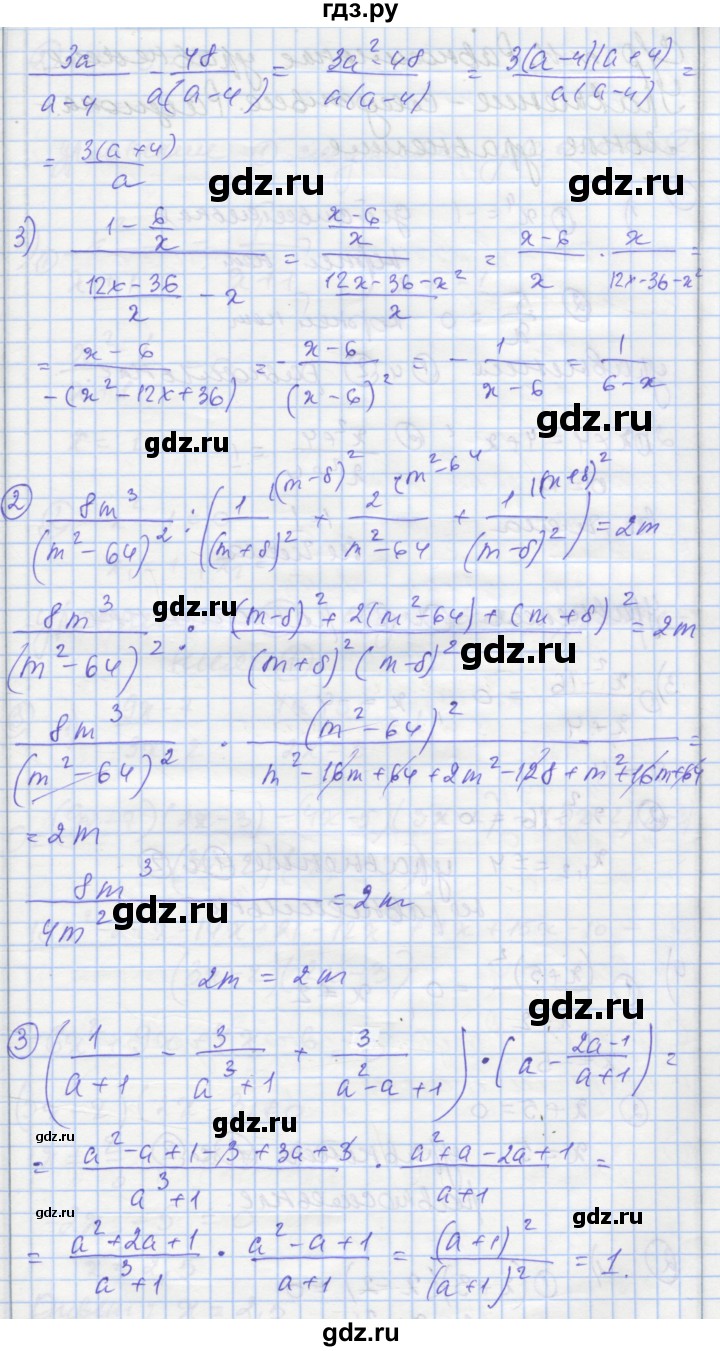 гдз.ру
3a/(a-4) - 48/(a(a-4)) = (3a²-48)/(a(a-4)) = (3(a-4)(a+4))/(a(a-4)) =
= 3(a+4)/a
gdz.ru gdz.ru
3) (1 - 6/x)/((12x-36)/x - x) = ((x-6)/x)/((12x-36-x²)/x) = (x-6)/x · x/(12x-36-x²) =
= (x-6)/(-(x²-12x+36)) = -(x-6)/(x-6)² = -1/(x-6) = 1/(6-x)
gdz.ru gdz.ru
2) 8m³/(m²-64)² : (1/(m+8)² |(m-8)² + 2/(m²-64) |m²-64 + 1/(m-8)² |(m+8)²) = 2m
gdz.ru
8m³/(m²-64)² : ((m-8)² + 2(m²-64) + (m+8)²)/((m+8)²(m-8)²) = 2m
gdz.ru
8m³/(m²-64)² · (m²-64)²/(m²-16m+64+2m²-128+m²+16m+64) =
= 2m
8m³/4m² = 2m
gdz.ru gdz.ru
2m = 2m
gdz.ru
3) (1/(a+1) - 3/(a³+1) + 3/(a²-a+1)) · (a - (2a-1)/(a+1)) =
gdz.ru gdz.ru
= (a²-a+1-3+3a+3)/(a³+1) · (a²+a-2a+1)/(a+1) =
gdz.ru gdz.ru
= (a²+2a+1)/(a³+1) · (a²-a+1)/(a+1) = (a+1)²/(a+1)² = 1.
gdz.ru
gdz.ru